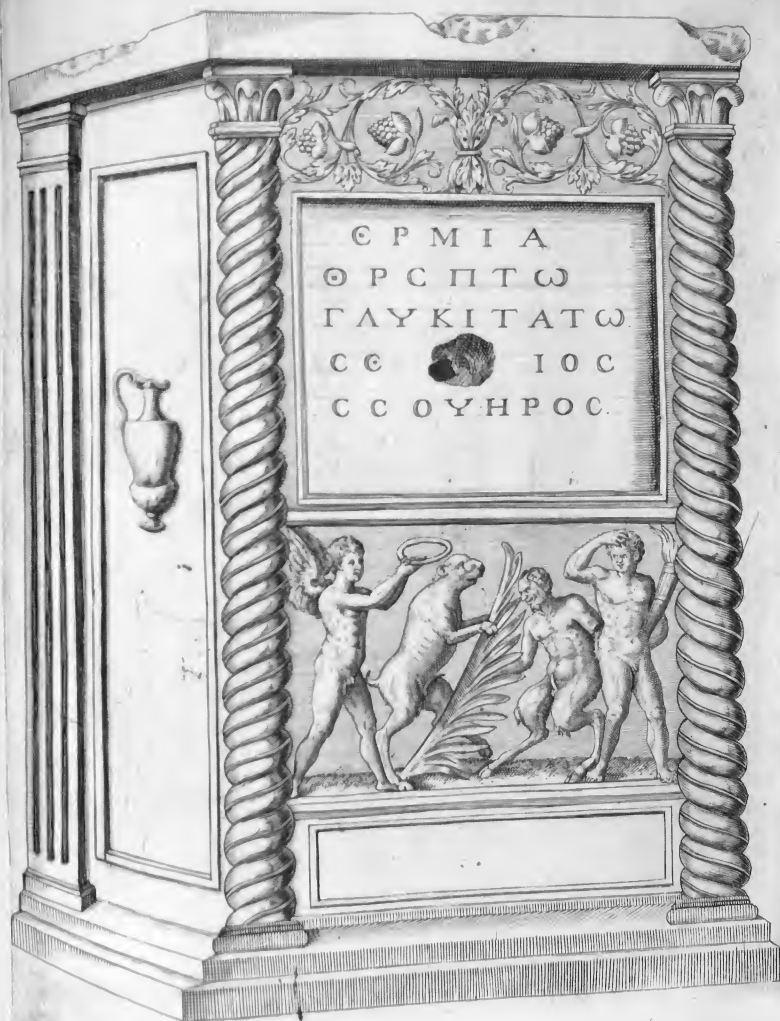 ΕΡΜΙΑ
ΘΡϹΠΤω
ΓΛΥΚΙΤΑΤω
ϹΕ ΙΟϹ
ϹϹΟΥΗΡΟϹ.